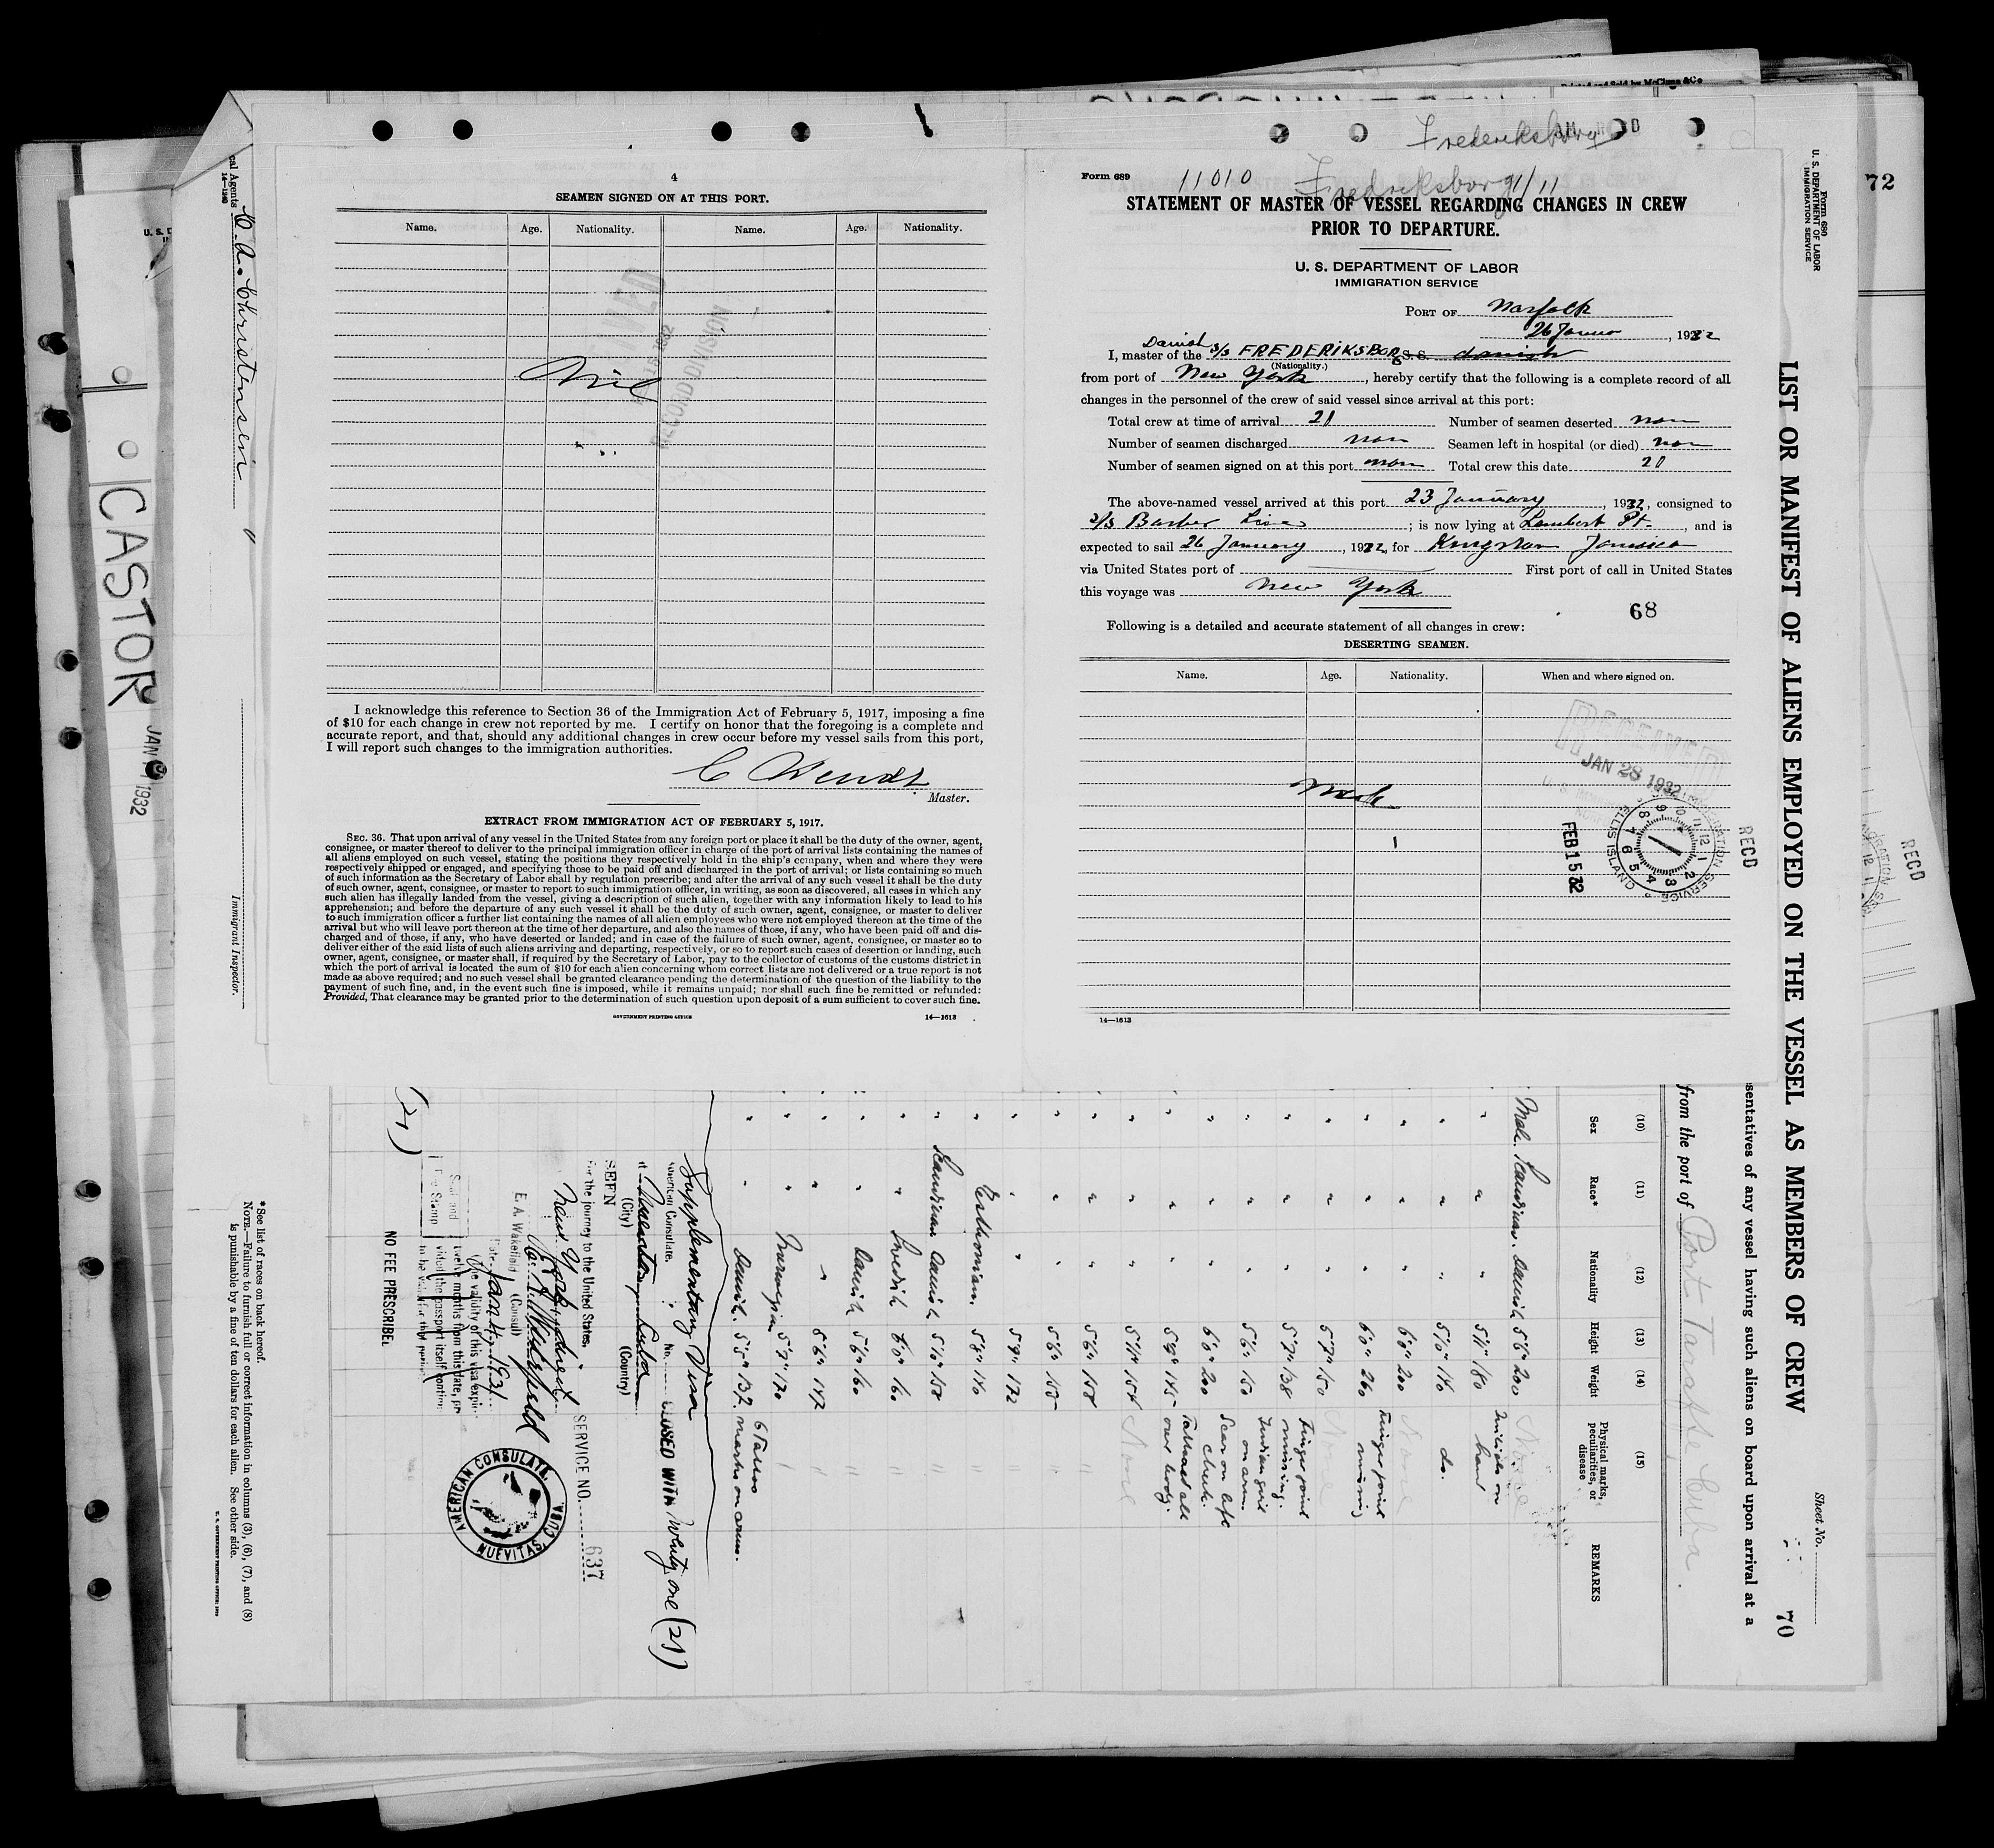 4
SEAMEN SIGNED ON AT THIS PORT.
Name. Age. Nationality. Name. Age. Nationality.
Nil
RECORD DIVISION
I acknowledge this reference to Section 36 of the Immigration Act of February 5, 1917, imposing a fine
of $10 for each change in crew not reported by me. I certify on honor that the foregoing is a complete and
accurate report, and that, should any additional changes in crew occur before my vessel sails from this port,
I will report such changes to the immigration authorities.
Master.
EXTRACT FROM IMMIGRATION ACT OF FEBRUARY 5, 1917.
SEC. 36. That upon arrival of any vessel in the United States from any foreign port or place it shall be the duty of the owner, agent,
consignee, or master thereof to deliver to the principal immigration officer in charge of the port of arrival lists containing the names of
all aliens employed on such vessel, stating the positions they respectively hold in the ship's company, when and where they were
respectively shipped or engaged, and specifying those to be paid off and discharged in the port of arrival; or lists containing so much
of such information as the Secretary of Labor shall by regulation prescribe; and after the arrival of any such vessel it shall be the duty
of such owner, agent, consignee, or master to report to such immigration officer, in writing, as soon as discovered, all cases in which any
such alien has illegally landed from the vessel, giving a description of such alien, together with any information likely to lead to his
apprehension; and before the departure of any such vessel it shall be the duty of such owner, agent, consignee, or master to deliver
to such immigration officer a further list containing the names of all alien employees who were not employed thereon at the time of the
arrival but who will leave port thereon at the time of her departure, and also the names of those, if any, who have been paid off and dis-
charged and of those, if any, who have deserted or landed; and in case of the failure of such owner, agent, consignee, or master so to
deliver either of the said lists of such aliens arriving and departing, respectively, or so to report such cases of desertion or landing, such
owner, agent, consignee, or master shall, if required by the Secretary of Labor, pay to the collector of customs of the customs district in
which the port of arrival is located the sum of $10 for each alien concerning whom correct lists are not delivered or a true report is not
made as above required; and no such vessel shall be granted clearance pending the determination of the question of the liability to the
payment of such fine, and, in the event such fine is imposed, while it remains unpaid; nor shall such fine be remitted or refunded:
Provided, That clearance may be granted prior to the determination of such question upon deposit of a sum sufficient to cover such fine.
GOVERNMENT PRINTING OFFICE 14—1613
Frederiksborg
Form 689 11010 Fredriksborg 1/11
STATEMENT OF MASTER OF VESSEL REGARDING CHANGES IN CREW
PRIOR TO DEPARTURE.
U. S. DEPARTMENT OF LABOR
IMMIGRATION SERVICE
PORT OF Norfolk
26 Januar, 1932
Danish
I, master of the s/s FREDERIKSBORG S.S. danish
(Nationality.)
from port of New York, hereby certify that the following is a complete record of all
changes in the personnel of the crew of said vessel since arrival at this port:
Total crew at time of arrival 21 Number of seamen deserted non
Number of seamen discharged non Seamen left in hospital (or died) non
Number of seamen signed on at this port non Total crew this date 21
The above-named vessel arrived at this port 23 January, 1932, consigned to
s/s Barber Line; is now lying at Lambert Pt., and is
expected to sail 26 January, 1932, for Kingston Jamaica
via United States port of First port of call in United States
this voyage was New York
68
Following is a detailed and accurate statement of all changes in crew:
DESERTING SEAMEN.
Name. Age. Nationality. When and where signed on.
RECEIVED
JAN 28 1932
FEB 15 32
IMMIGRATION SERVICE
ELLIS ISLAND
RECD
14—1613
72
Form 680
U. S. DEPARTMENT OF LABOR
IMMIGRATION SERVICE
LIST OR MANIFEST OF ALIENS EMPLOYED ON THE VESSEL AS MEMBERS OF CREW
Sheet No.
70
sentatives of any vessel having such aliens on board upon arrival at a
from the port of Port Tarafte Cuba.
(10) (11) (12) (13) (14) (15)
Sex Race* Nationality Height Weight Physical marks, peculiarities, or disease REMARKS
Male Scandinav. Danish 5'6" 200 None
" " " 5'11" 180 Initials on hand
" " " 5'10" 140 do.
" " " 6'0" 200 None
" " " 6'0" 260 Finger joint missing
" " " 5'7" 150 None
" " " 5'7" 138 Finger joint missing.
" " " 5'6" 150 Indian girl on arm.
" " " 6'0" 200 Scar on left cheek.
" " " 5'9" 145 Tattooed all over body.
" " " 5'11" 154 None
" " " 5'6" 158 "
" " " 5'6" 155 "
" " " 5'9" 172 "
" Esthonian. 5'8" 140 "
" Scandinav Danish 5'10" 158 "
" " Swedish 6'0" 160 "
" " Danish 5'6" 160 "
" " " 5'6" 147 "
" " Norwegian 5'7" 170 "
" " Danish. 5'5" 132 Tattoo marks on arms.
Supplementary Visa
American Consulate.
No. CLOSED WITH twenty one (21)
(City) (Country)
SEEN
For the journey to the United States.
SERVICE NO. 637
New York direct
E. A. Wakefield
(Consul)
Date Jan. 4, 1931
NO FEE PRESCRIBED
AMERICAN CONSULATE,
NUEVITAS, CUBA
(21)
*See list of races on back hereof.
NOTE.—Failure to furnish full or correct information in columns (3), (6), (7), and (8)
is punishable by a fine of ten dollars for each alien. See other side.
Immigrant Inspector.
C. A. Christensen
cal Agents
14—1240
CASTOR
1932
RECD